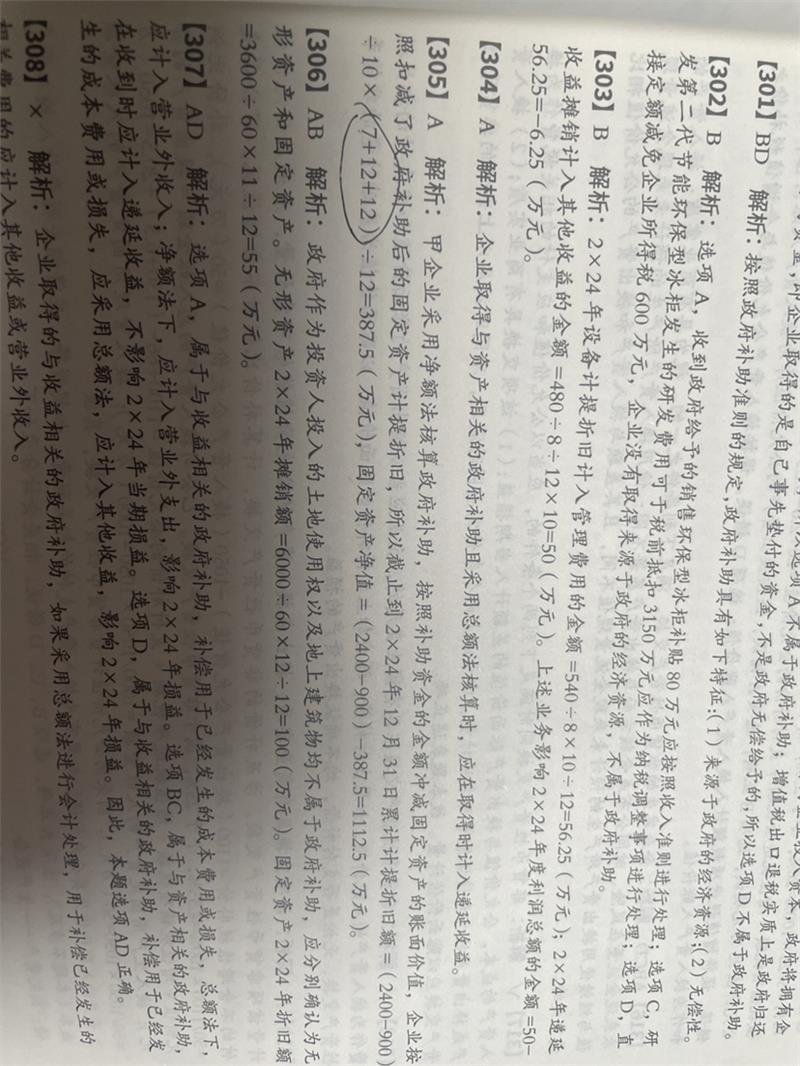 资金，即企业取得的是自己事先垫付的资金，不是政府无偿给予的，所以选项D不属于政府补助。
选项A不属于政府补助；增值税出口退税实质上是政府归还
【301】BD 解析：按照政府补助准则的规定，政府补助具有如下特征：(1)来源于政府的经济资源；(2)无偿性。
【302】B 解析：选项A，收到政府给予的销售环保型冰柜补贴80万元应按照收入准则进行处理；选项C，研
发第二代节能环保型冰柜发生的研发费用可于税前抵扣3150万元应作为纳税调整事项进行处理；选项D，直
接定额减免企业所得税600万元，企业没有取得来源于政府的经济资源，不属于政府补助。
【303】B 解析：2×24年设备计提折旧计入管理费用的金额=540÷8×10÷12=56.25（万元）；2×24年递延
收益摊销计入其他收益的金额=480÷8÷12×10=50（万元）。上述业务影响2×24年度利润总额的金额=50-
56.25=-6.25（万元）。
【304】A 解析：企业取得与资产相关的政府补助且采用总额法核算时，应在取得时计入递延收益。
【305】A 解析：甲企业采用净额法核算政府补助，按照补助资金的金额冲减固定资产的账面价值，企业按
照扣减了政府补助后的固定资产计提折旧，所以截止到2×24年12月31日累计计提折旧额=（2400-900）
÷10×（7+12+12）÷12=387.5（万元），固定资产净值=（2400-900）-387.5=1112.5（万元）。
【306】AB 解析：政府作为投资人投入的土地使用权以及地上建筑物均不属于政府补助，应分别确认为无
形资产和固定资产。无形资产2×24年摊销额=6000÷60×12÷12=100（万元）。固定资产2×24年折旧额
=3600÷60×11÷12=55（万元）。
【307】AD 解析：选项A，属于与收益相关的政府补助，补偿用于已经发生的成本费用或损失，总额法下，
应计入营业外收入；净额法下，应计入营业外支出，影响2×24年损益。选项BC，属于与资产相关的政府补助，
在收到时应计入递延收益，不影响2×24年当期损益。选项D，属于与收益相关的政府补助，补偿用于已经发
生的成本费用或损失，应采用总额法，应计入其他收益，影响2×24年损益。因此，本题选项AD正确。
【308】× 解析：企业取得的与收益相关的政府补助，如果采用总额法进行会计处理，用于补偿已经发生的
相关费用的应计入其他收益或营业外收入。